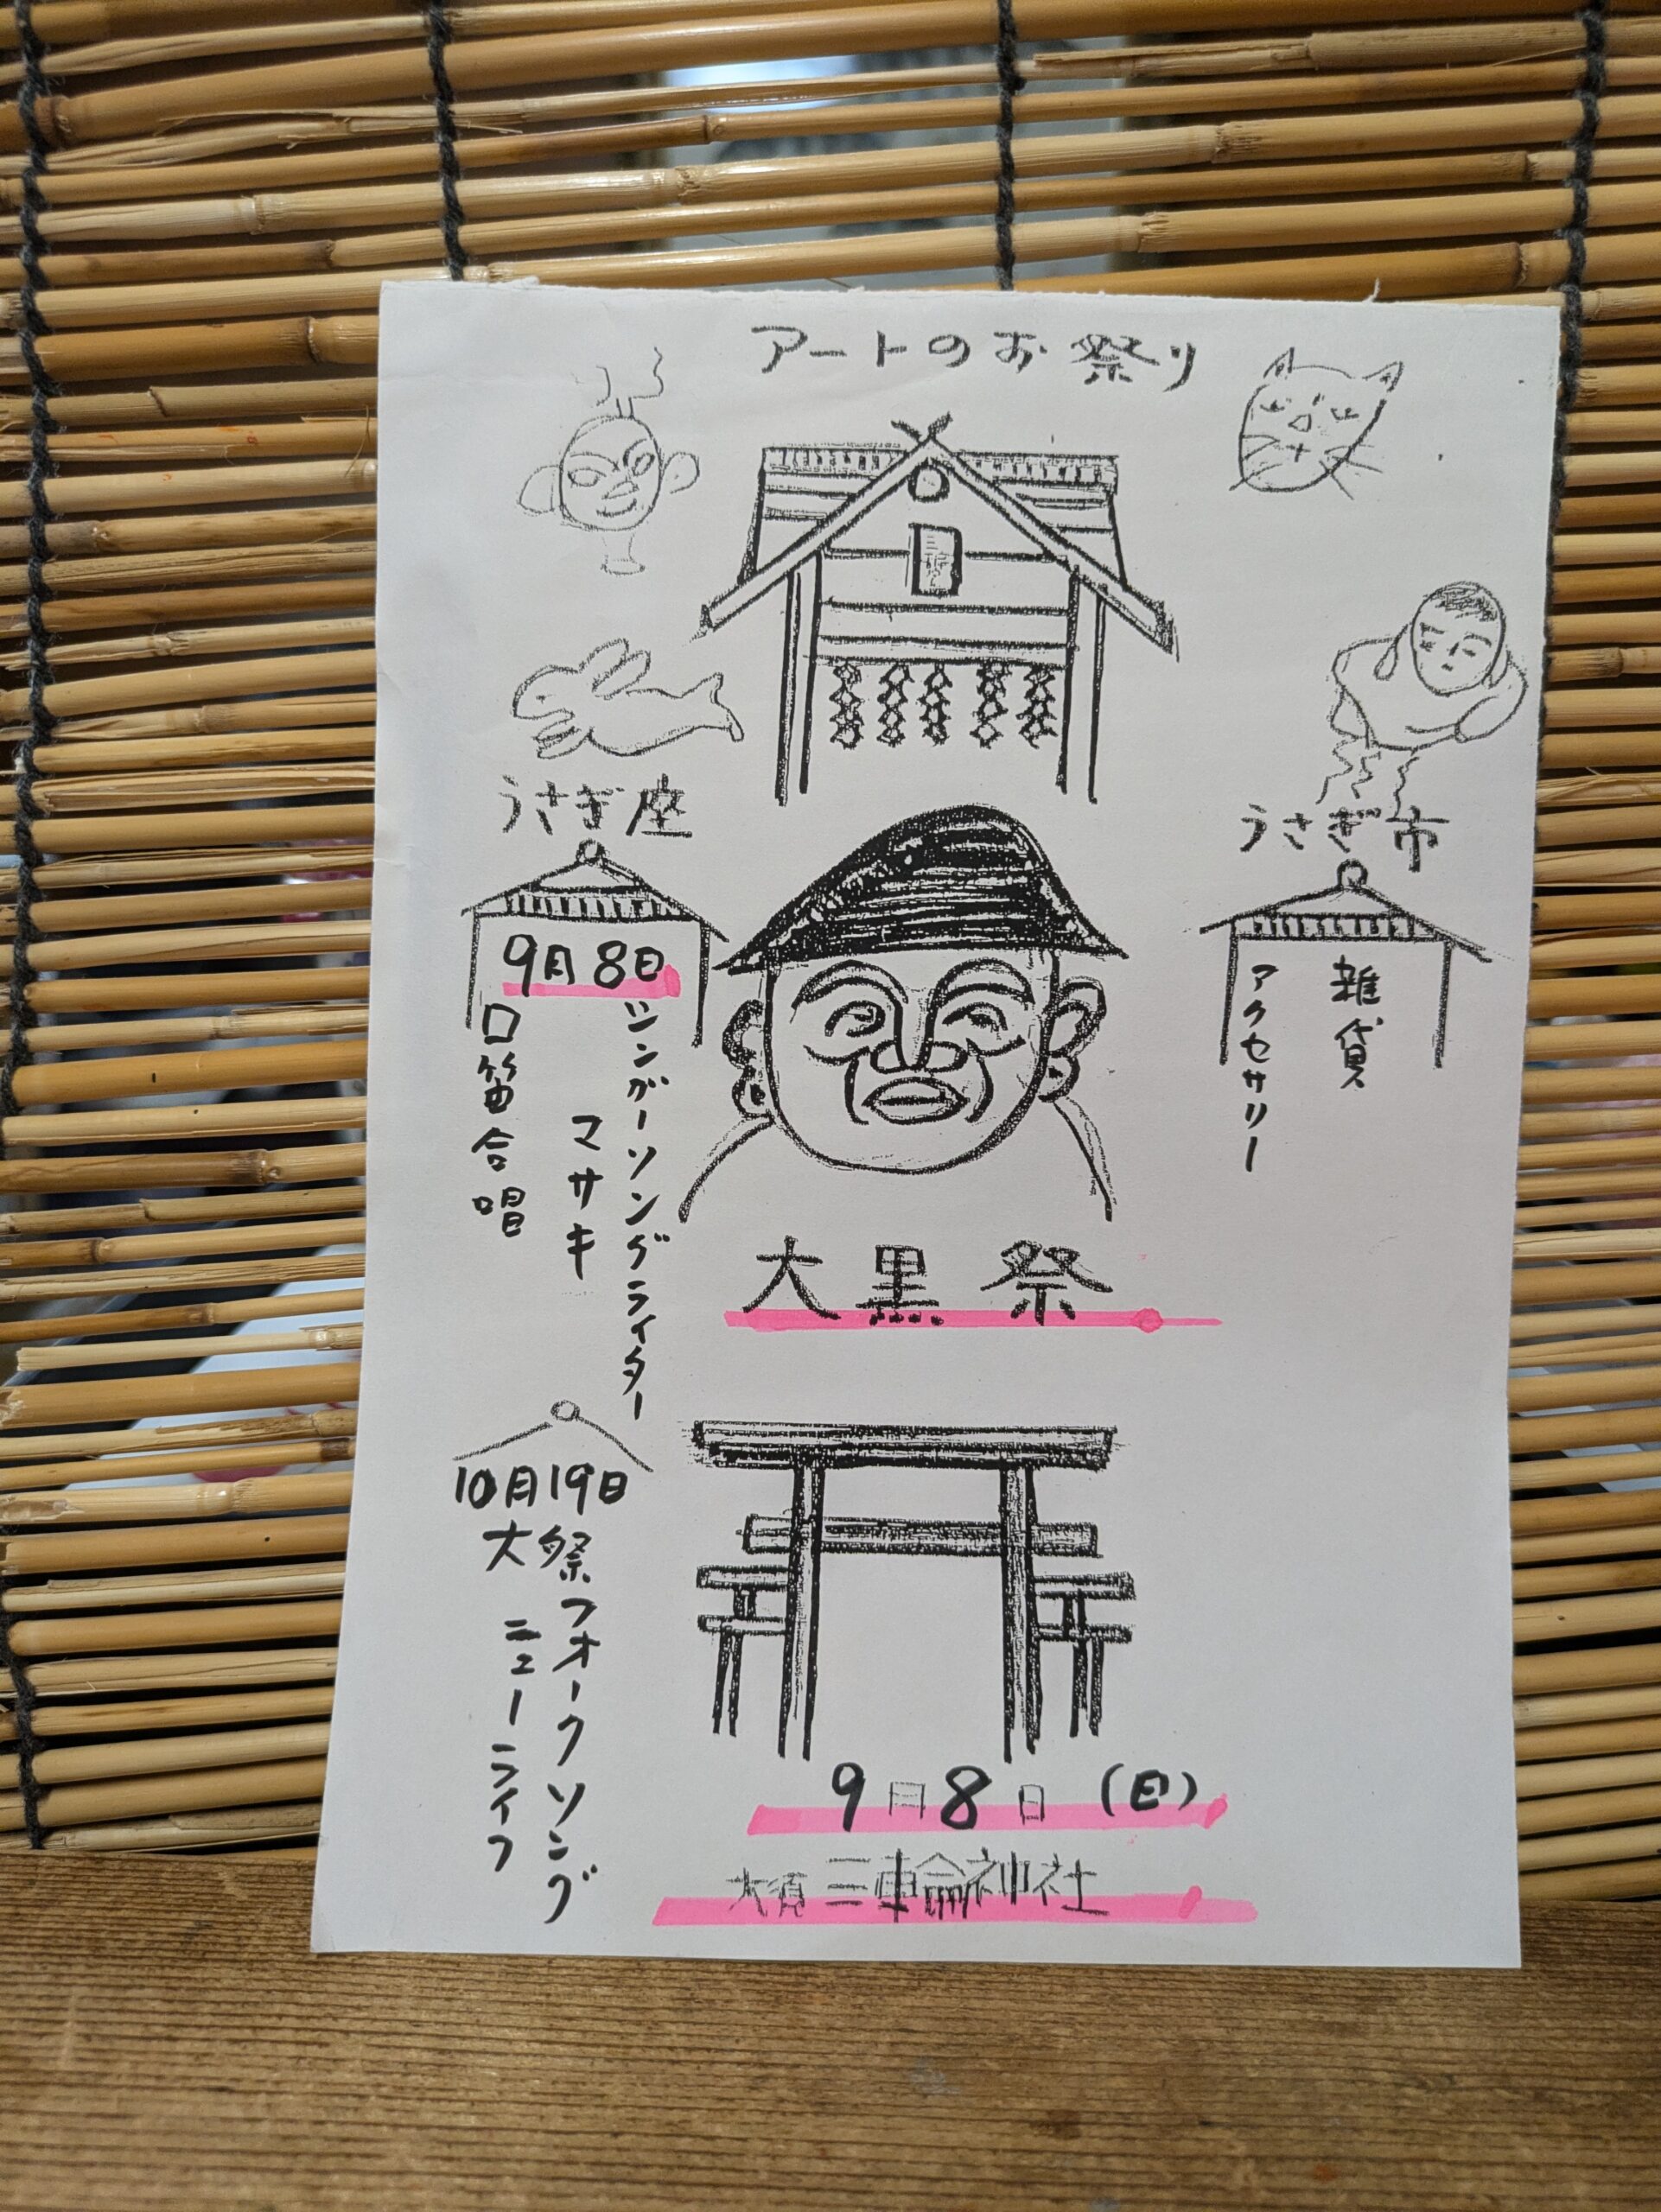 アートのお祭り
うさぎ座
9月8日
シンガーソングライター
マサキ
口笛合唱
うさぎ市
雑貨
アクセサリー
大黒祭
10月19日
大祭
フォークソング
ニューライフ
9月8日(日)
大須三輪神社